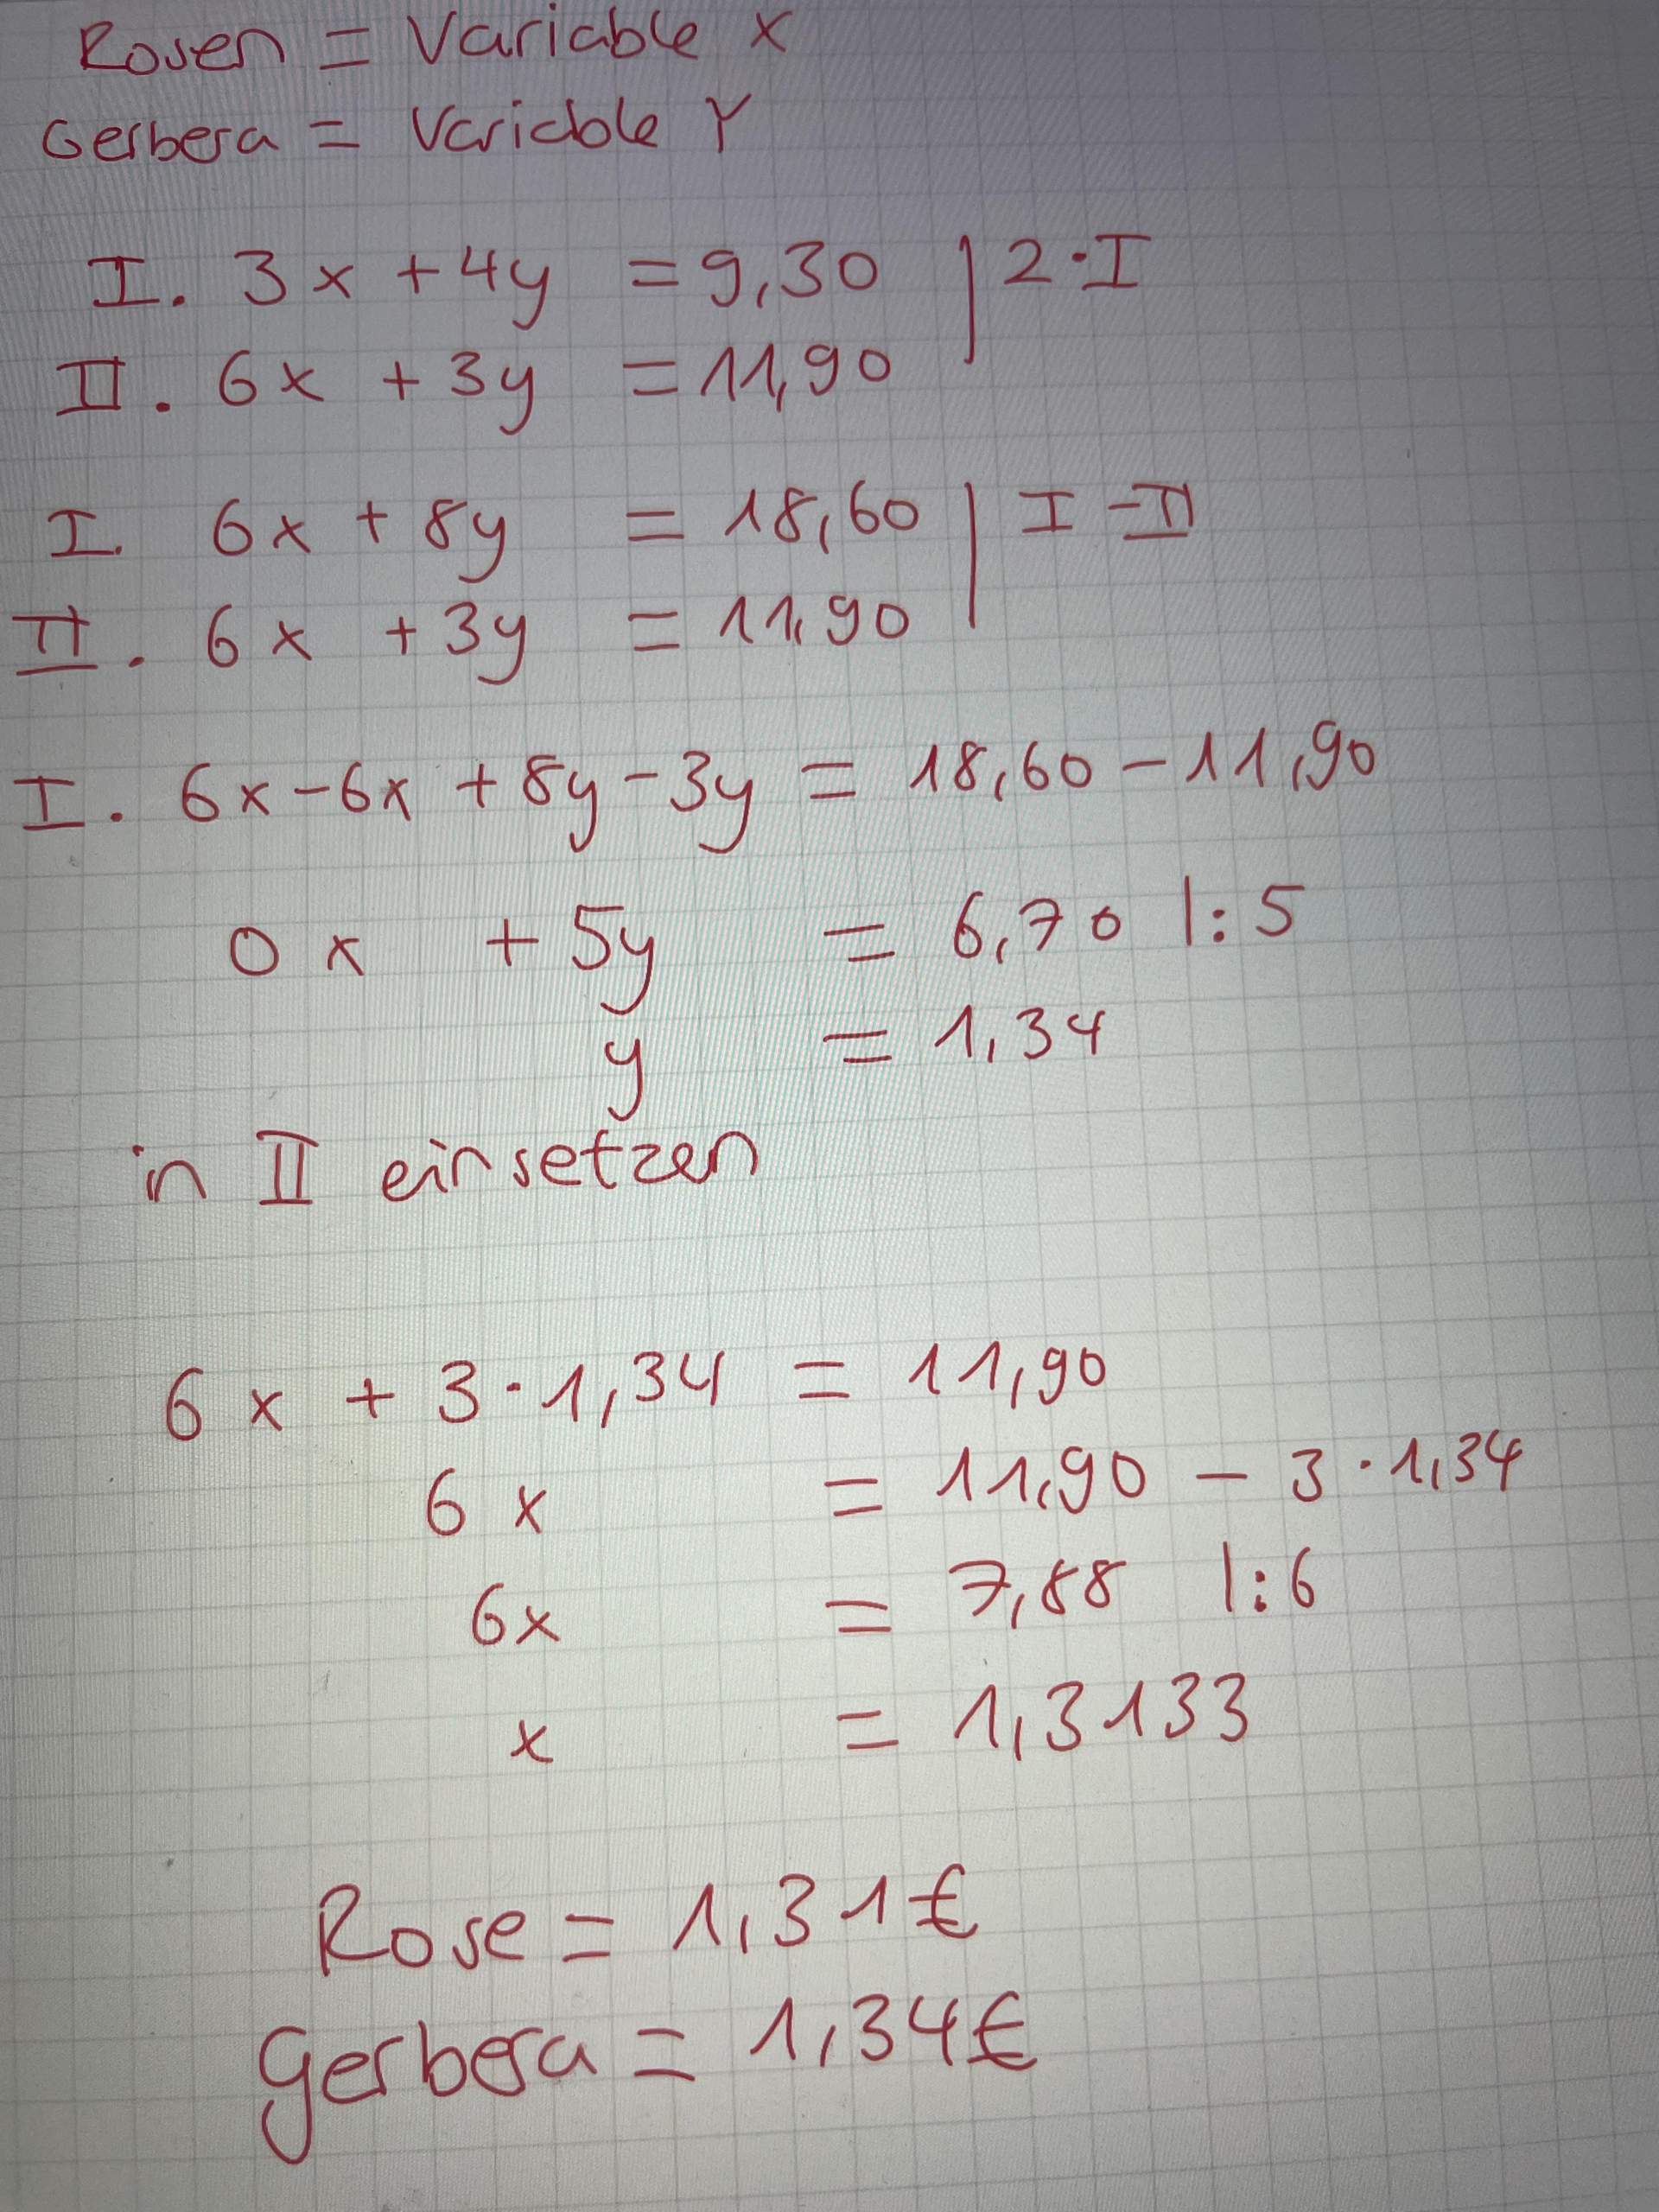 Rosen = Variable x
Gerbera = Variable Y
I. 3x + 4y = 9,30 | 2·I
II. 6x + 3y = 11,90
I. 6x + 8y = 18,60 | I - II
II. 6x + 3y = 11,90
I. 6x - 6x + 8y - 3y = 18,60 - 11,90
0x + 5y = 6,70 |:5
y = 1,34
in II einsetzen
6x + 3·1,34 = 11,90
6x = 11,90 - 3·1,34
6x = 7,88 |:6
x = 1,3133
Rose = 1,31€
Gerbera = 1,34€